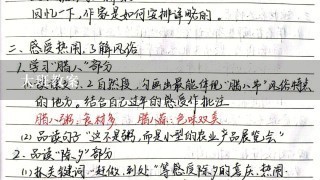 回忆一下，作家是如何安排详略的。
二、感受热闹，了解风俗
1.学习“腊八”部分
1、2自然段，勾画出最能体现“腊八节”风俗特点
的地方。结合自己过年的感受作批注
腊八粥：食材多 腊八蒜：色味双美
(2)品读句子“这不是粥，而是小型的农业产品展览会”
2.品读“除夕”部分
(1)抓关键词“赶做，到处”等感受除夕的喜庆、热闹.